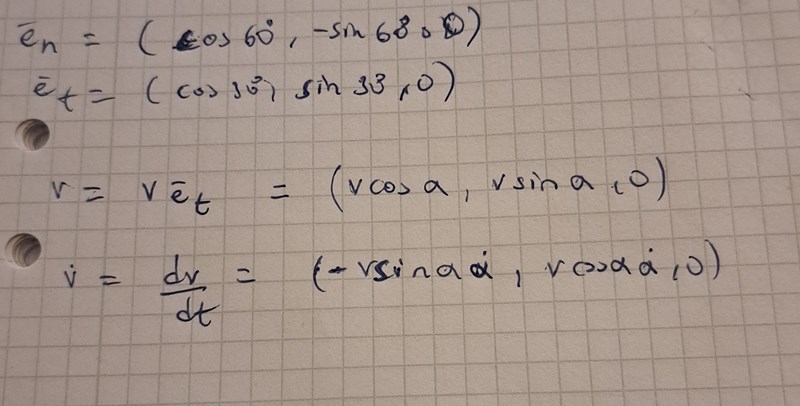 ē_n = (cos 60°, -sin 60°, 0)
ē_t = (cos 30°, sin 30, 0)
v = v ē_t = (v cos α, v sin α, 0)
v̇ = dv/dt = (-v sin α α̇, v cos α α̇, 0)